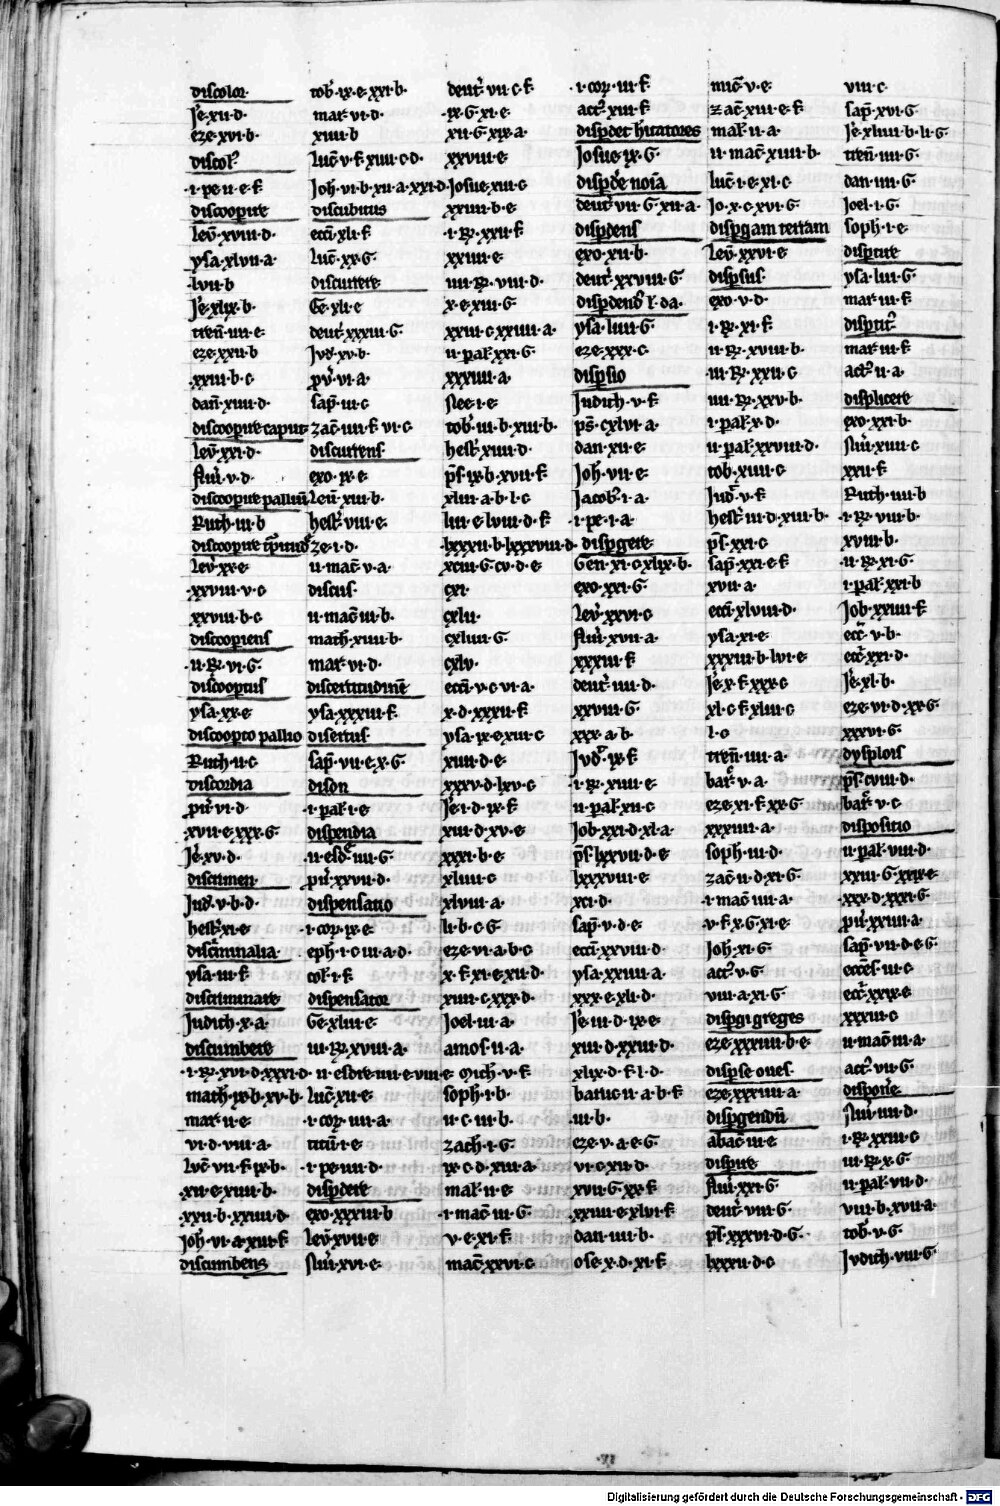 discolor
Je·xii·d·
eze·xvi·b·
discol'
·i·pe·ii·e·k
discooperire
lev̄·xviii·d·
ysa·xlvii·a·
·lvii·b
Je·xlix·b·
tren̄·iiii·e·
eze·xxii·b
·xxiii·b·c
dan̄·xiiii·d·
discooperire caput
lev̄·xxi·d·
v·d·
discooperire palliū
Ruth·iii·b
lev̄·xx·e
·xxviii·b·c
discooperiens
·ii·R̄·vi·G·
discoopertus
ysa·xx·e
discooperto pallio
Ruth·ii·c
discordia
pū·vi·d·
·xvii·e·xxx·G·
Je·xv·d·
discrimen
Jud̄·v·b·d·
hest·xi·e
discriminalia
ysa·iii·k
discriminare
Judich·x·a·
discumbere
·i·R̄·xvi·d·xxxi·d·
math·ix·b·xv·b·
mar·ii·e
vi·d·viii·a·
luc̄·vii·k·ix·b·
·xii·e·xiiii·b·
·xxii·b·xxiiii·d·
Joh·vi·a·xiii·k
discumbens
tob·ix·e·xxi·b·
mar·vi·d·
xiiii·b
luc̄·v·k·xiiii·c·d·
Joh·vi·b·xii·a·xxi·d·
discubitus
ecc̄i·xli·k
luc̄·xx·G·
discurrere
Ge·xli·e
deut̄·xxxiii·G·
Jud·xv·b·
pū·vi·a·
sap̄·iii·c
zac̄·iiii·k·vi·c·
discurrens
exo·ix·e·
leū·xiii·b·
hest·viii·e·
ze·i·d·
ii·mac̄·v·a·
discus
ii·mac̄·iii·b·
math·xiiii·b·
mar·vi·d·
disertitudinē
ysa·xxxiii·k·
disertus
sap̄·vii·e·x·G·
disdn
·i·pal·i·e
dispendia
·ii·esd·iiii·G·
pū·xxvii·d·
dispensatio
·i·cor·ix·e·
eph·i·c·iii·a·d·
col·i·k
dispensator
Ge·xliii·e
iii·R̄·xviii·a·
ii·esdre·iiii·e·viii·e
luc̄·xii·e
·i·cor·iiii·a·
titū·i·e
·i·pe·iiii·d·
disperdere
exo·xxxiii·b
lev̄·xvii·e
xvi·e·
deut̄·vii·c·k
·ix·G·xi·e
xii·G·xix·a·
xxviii·e
Josue·xiii·c
xxiiii·b·e
·i·R̄·xxii·k
xxiiii·e
iiii·R̄·viii·d·
x·e·xiii·G
xxiii·c·xxiiii·a·
ii·pal·xxi·G·
xxxiiii·a·
Nee·i·e·
tob·iii·b·xiii·b·
hest·xiii·d·
ps·ix·b·xvii·k
xliii·a·b·l·c
liii·e·lviii·d·k
·lxxxii·b·lxxxviii·d·
xciii·G·cv·d·e
cxi·
cxlii·
cxliii·G·
cxlv·
ecc̄i·v·c·vi·a·
x·d·xxxii·k
ysa·ix·e·xiii·c
xiiii·d·e
xxxv·d·lxv·c
Je·i·d·ix·k
xiii·d·xv·e
xxxi·b·e
xliiii·c
xlviii·a
li·b·c·G
eze·vi·a·b·c
x·k·xi·e·xii·d·
xiiii·c·xxx·d·
Joel·iii·a·
amos·ii·a·
Mich·v·k
soph·i·b·
ii·c·iii·b·
zach·i·G·
ix·c·d·xiii·a·
mal·ii·e
·i·mac̄·iii·G·
v·e·xi·k
mac̄·xxvi·c
·i·cor·iii·k
act·xiii·k
disperdet hitatores
Josue·ix·G·
disperdere noīa
deut̄·vii·G·xii·a·
disperdens
exo·xii·b·
deut̄·xxviii·G
ysa·liiii·G·
eze·xxx·c·
dispersio
Judith·v·k
ps·cxlvi·a·
dan·xii·e
Joh·vii·e
Jacob·i·a·
·i·pe·i·a·
dispergere
Gen·xi·c·xlix·b·
exo·xxi·G·
lev̄·xxvi·c
xvii·a·
xxxiii·k
deut̄·iiii·d·
xxviii·G·
xxx·a·b·
Jud·ix·k
·i·R̄·xiiii·e
ii·pal·xii·c
Job·xxi·d·xl·a·
ps·lxxvii·d·e
lxxxviii·e
xci·d·
sap̄·v·d·e
ecc̄i·xxviii·d
ysa·xxiiii·a·
xxx·e·xli·d·
Je·iii·d·ix·e
xiii·d·xxiii·d·
xlix·d·k·l·d·
baruc·ii·a·b·k
·iii·b·
eze·v·a·e·G·
vi·c·xii·d·
xvii·G·xx·k
xxiiii·e·xlvi·k
dan·iiii·b·
ose·x·d·xi·k
mic̄·v·e·
zac̄·xiii·e·k
mal·ii·a·
ii·mac̄·xiiii·b·
luc̄·i·e·xi·c
Jo·x·c·xvi·G
dispergam terram
lev̄·xxvi·e
dispersus
exo·v·d·
·i·R̄·xi·k
ii·R̄·xviii·b·
iii·R̄·xxii·c
iiii·R̄·xxv·b·
·i·pal·x·d·
ii·pal·xxviii·d·
tob·xiii·c
Jud·v·k
hest·iii·d·xiii·b·
ps·xxi·c
sap̄·xxi·e·k
xvii·a·
ecc̄i·xlviii·d·
ysa·xi·e
xxxiii·b·lvi·e
Je·x·k·xxx·c
xl·c·k·xliii·c
l·c
tren̄·iiii·a·
bar·v·a·
eze·xi·k·xx·G·
xxxiiii·a·
soph·iii·d·
zac̄·ii·d·xi·G·
·i·mac̄·iiii·a·
v·k·x·G·xi·e
Joh·xi·G·
act·v·G·
viii·a·xi·G·
dispergi greges
eze·xxxiiii·b·e
disperse oves
eze·xxxiiii·a·
dispergendū
abac·iii·e
disperire
xxi·G·
deut̄·viii·G·
ps·xxxvi·d·G·
lxxxii·d·c
viii·c
sap̄·xvi·G
Je·xliiii·b·li·G·
tren̄·iiii·G·
dan·iiii·G
Joel·i·G
soph·i·e
ysa·liii·G
mar·iii·k
mar·iii·k
act·ii·a·
displicere
exo·xxi·b·
xiiii·c
xxii·k
Ruth·iiii·b
·i·R̄·viii·b·
xviii·b·
·ii·R̄·xi·G
·i·pal·xxi·b
Job·xxiiii·k
ecc̄·v·b·
ecc̄·xxi·d·
Je·xl·b·
eze·vi·d·xx·G·
xxxvi·G·
dysplois
ps·cviii·d·
bar·v·c
dispositio
ii·pal·viii·d·
xxiii·G·xxix·e
xxx·d·xxxi·G·
pū·xxiiii·a·
sap̄·vii·d·e·G
ecc̄es·iii·c
ecc̄·xxix·e
xxxiii·c
ii·mac̄·iii·a·
act·vii·G·
disponere
iiii·d·
·i·R̄·xxiii·c
iii·R̄·x·G
ii·pal·vii·d·
viii·b·xvii·a·
tob·v·G·
Judich·viii·G·
Digitalisierung gefördert durch die Deutsche Forschungsgemeinschaft · DFG